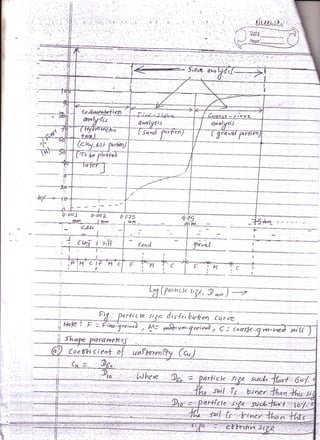 Date
Page
Sieve analysis
Sedimentation
analysis
(Hydrometer
test)
(Clay, silt portion)
[To be plotted
later]
Fine-sieve
analysis
(sand portion)
Coarse-sieve
analysis
(gravel portion)
% finer
(N)
10%
0.001 0.002 0.075 4.75 75mm
mm mm mm mm
clay silt sand gravel
F M C F M C F M C F M C
Log (particle size, D mm) →
Fig: particle size distribution curve
[Note: F = Fine-grained, M = medium-grained, C = coarse-grained soils]
shape parameters
(a) Coefficient of uniformity (Cu)
Cu = D60
D10
where D60 = particle size such that 60%
the soil is finer than this size
D10 = particle size such that 10%
the soil is finer than this
size effective size